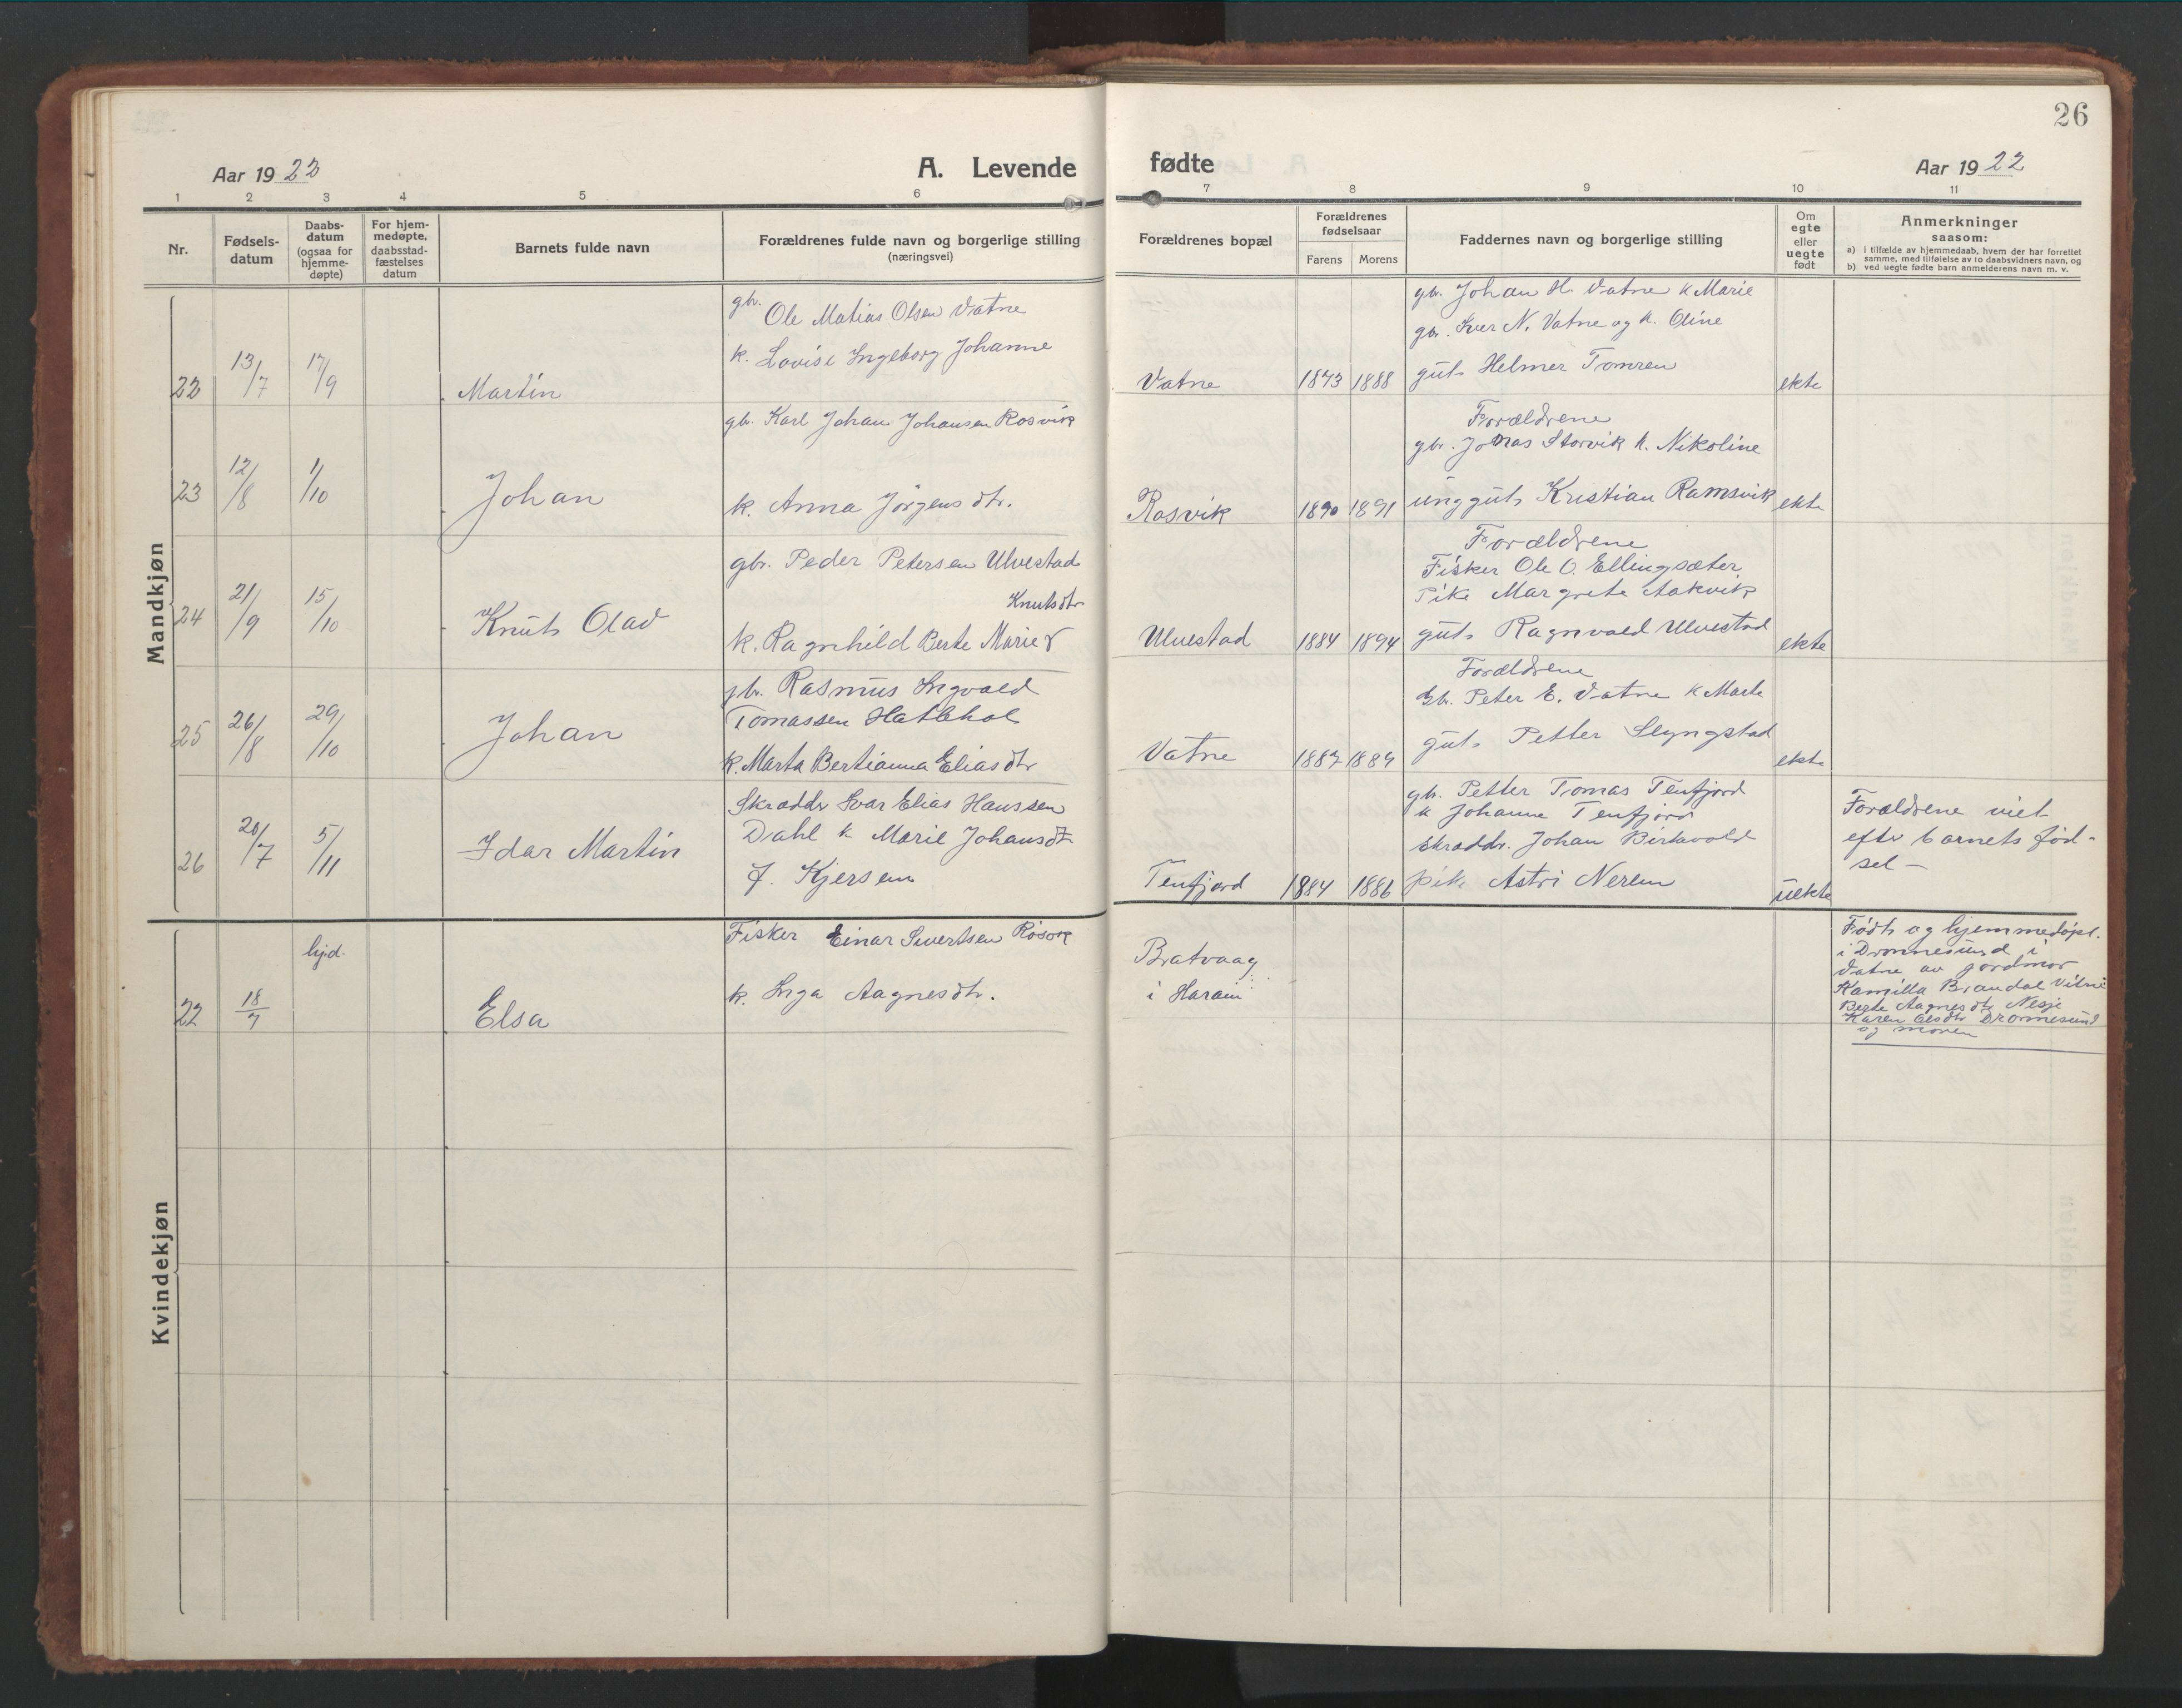 26
Aar 1922
A. Levende
fødte
Aar 1922
1 2 3 4 5 6 7 8 9 10 11
Nr.
Fødsels-
datum
Daabs-
datum
(ogsaa for
hjemme-
døpte)
For hjem-
medøpte,
daabsstad-
fæstelses
datum
Barnets fulde navn
Forældrenes fulde navn og borgerlige stilling
(næringsvei)
Forældrenes bopæl
Forældrenes
fødselsaar
Farens Morens
Faddernes navn og borgerlige stilling
Om
egte
eller
uegte
født
Anmerkninger
saasom:
a) i tilfælde av hjemmedaab, hvem der har forrettet
samme, med tilføielse av to daabsvidners navn, og
b) ved uegte fødte barn anmelderens navn m. v.
Mandkjøn
22
13/7
17/9
Martin
gbr. Ole Matias Olsen Vatne
k. Lovise Ingeborg Johanne
Vatne
1873 1888
gbr. Johan H. Vatne k Marie
gbr. Iver N. Vatne og k. Oline
gut. Helmer Tomren
ekte
23
12/8
1/10
Johan
gbr. Karl Johan Johansen Rosvik
k. Anna Jørgensdtr.
Rosvik
1890 1891
Forældrene
gbr. Jonas Storvik k. Nikoline
unggut. Kristian Ramsvik
ekte
24
21/9
15/10
Knut Olav
gbr. Peder Petersen Ulvestad
Knutsdtr
k. Ragnhild Berte Marie
Ulvestad
1884 1894
Forældrene
Fisker Ole O. Ellingsæter
Pike Margrete Aakvik
gut. Ragnvald Ulvestad
ekte
25
26/8
29/10
Johan
gbr. Rasmus Ingvald
Tomassen Hatlehol
k. Marta Bertianna Eliasdtr
Vatne
1887 1889
Forældrene
Gbr. Peter E. Vatne k Marte
gut. Petter Slyngstad
ekte
26
20/7
5/11
Idar Martin
Skrædder Ivar Elias Hanssen
Dahl k Marie Johansdtr
f. Kjersem
Tenfjord
1884 1886
gbr. Petter Tomas Tenfjord
k Johanne Tenfjord
skrædder. Johan Birkevold
pike Astri Nerem
uekte
Forældrene viet
efter barnets fød-
sel
Kvindekjøn
22
18/7
hjd.
Elsa
Fisker Einar Sivertsen Røsok
k. Inga Aagnesdtr.
Bratvaag
i Haram
Født og hjemmedøpt.
i Dronnesund i
Vatne av jordmor
Kamilla Brandal Vitne
Berte Aagnesdtr Nesje
Karen Olsdtr Dronnesund
og moren